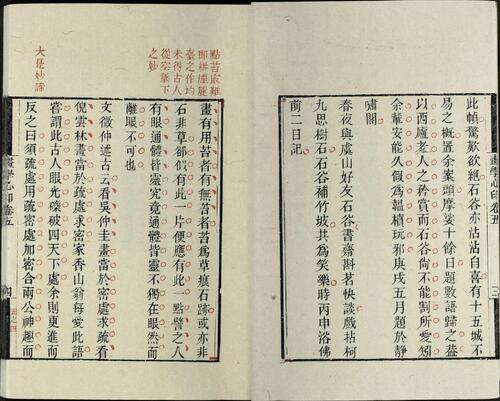 此幀驚歎欲絕石谷亦沾沾自喜有十五城不
易之概置余案頭摩娑十餘日題數語歸之蓋
以西廬老人之矜賞而石谷尙不能割所愛矧
余輩安能久假為韞櫝玩邪庚戌五月題於靜
嘯閣
春夜與虞山好友石谷書齋斟茗快談戲拈柯
九思樹石石谷補竹坡共為笑樂時丙申浴佛
前二日記
畫學心印卷五
三
點苔最難
即耕煙麓
臺之作均
未得古人
從空墜下
之妙
畫有用苔者有無苔者苔為草痕石跡或亦非
石非草卻似有此一片便應有此一點譬之人
有眼通體皆靈究竟通體皆靈不獨在眼然而
離眼不可也
文徵仲述古云看吳仲圭畫當於密處求疏看
倪雲林畫當於疏處求密家香山翁每愛此語
嘗謂此古人眼光鑠破四天下處余則更進而
反之曰須疏處用疏密處加密合兩公神趣而
大是妙諦
畫學心印卷五
四